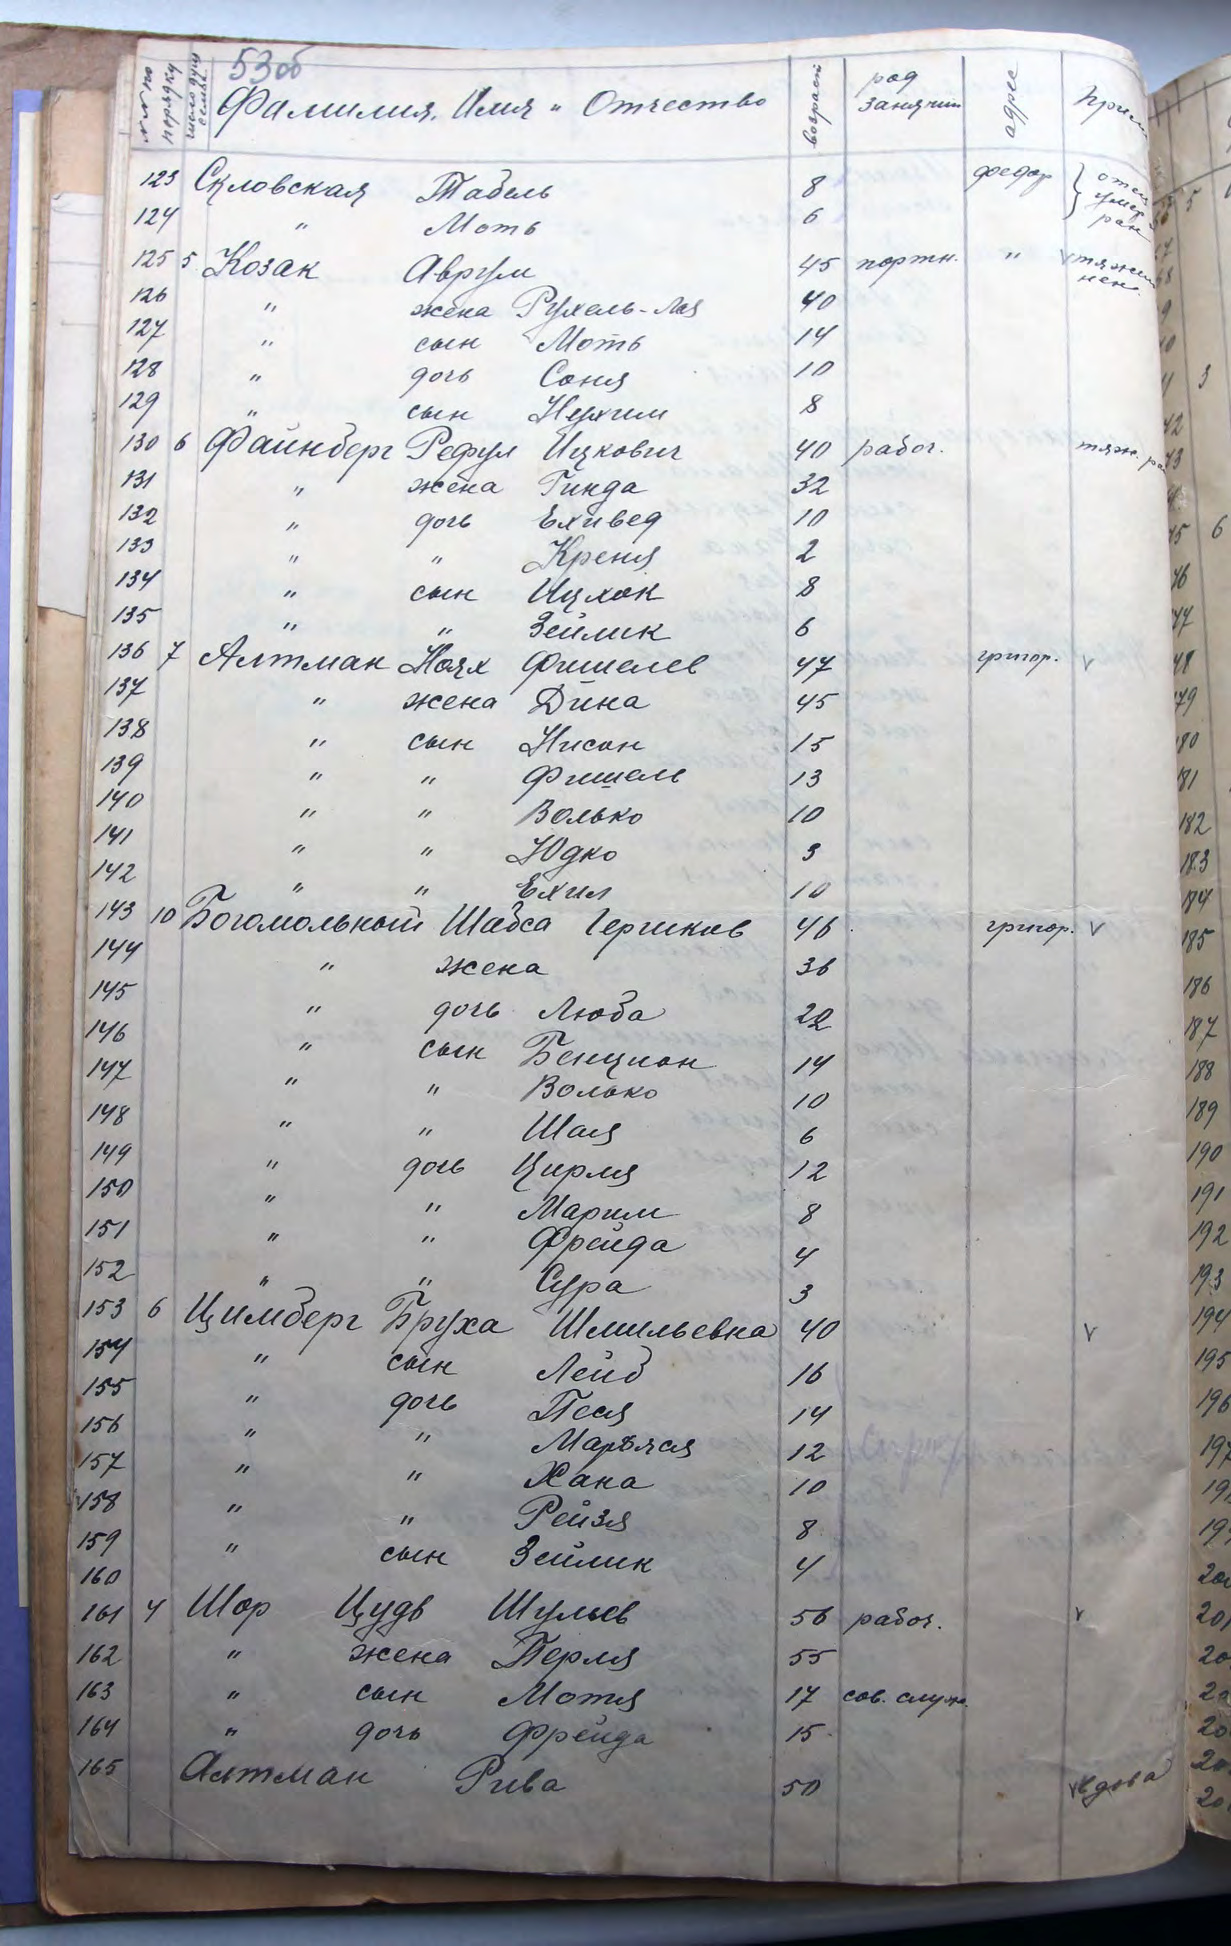 53об
№№ по порядку число душ семьи Фамилия, Имя и Отчество возраст род занятий адрес
123 Скловская Табель 8 федор
124 " Моть 6
125 5 Козак Аврум 45 портн. " v
126 " жена Рухель-Лея 40
127 " сын Моть 14
128 " дочь Соня 10
129 " сын Нухим 8
130 6 Файнберг Рефул Ицкович 40 рабоч. тяж.
131 " жена Гинда 32
132 " дочь Ехивед 10
133 " " Креня 2
134 " сын Ицхок 8
135 " " Зейлик 6
136 7 Алтман Ноях Фишелев 47 григор. v
137 " жена Дина 45
138 " сын Нисон 15
139 " " Фишель 13
140 " " Волько 10
141 " " Юдко 3
142 " " Ехил 10
143 10 Богомольный Шабса Гершков 46 григор. v
144 " жена 36
145 " дочь Люба 22
146 " сын Бенцион 14
147 " " Волько 10
148 " " Шая 6
149 " дочь Цирля 12
150 " " Марим 8
151 " " Фрейда 4
152 " " Сура 3
153 6 Цимберг Бруха Шмильевна 40 v
154 " сын Лейб 16
155 " дочь Песя 14
156 " " Марьяся 12
157 " " Хана 10
158 " " Рейзя 8
159 " сын Зейлик 4
160
161 4 Шор Цудь Шульев 56 рабоч. v
162 " жена Перля 55
163 " сын Мотя 17 сов. служ.
164 " дочь Фрейда 15
165 Алтман Рива 50 v вдова